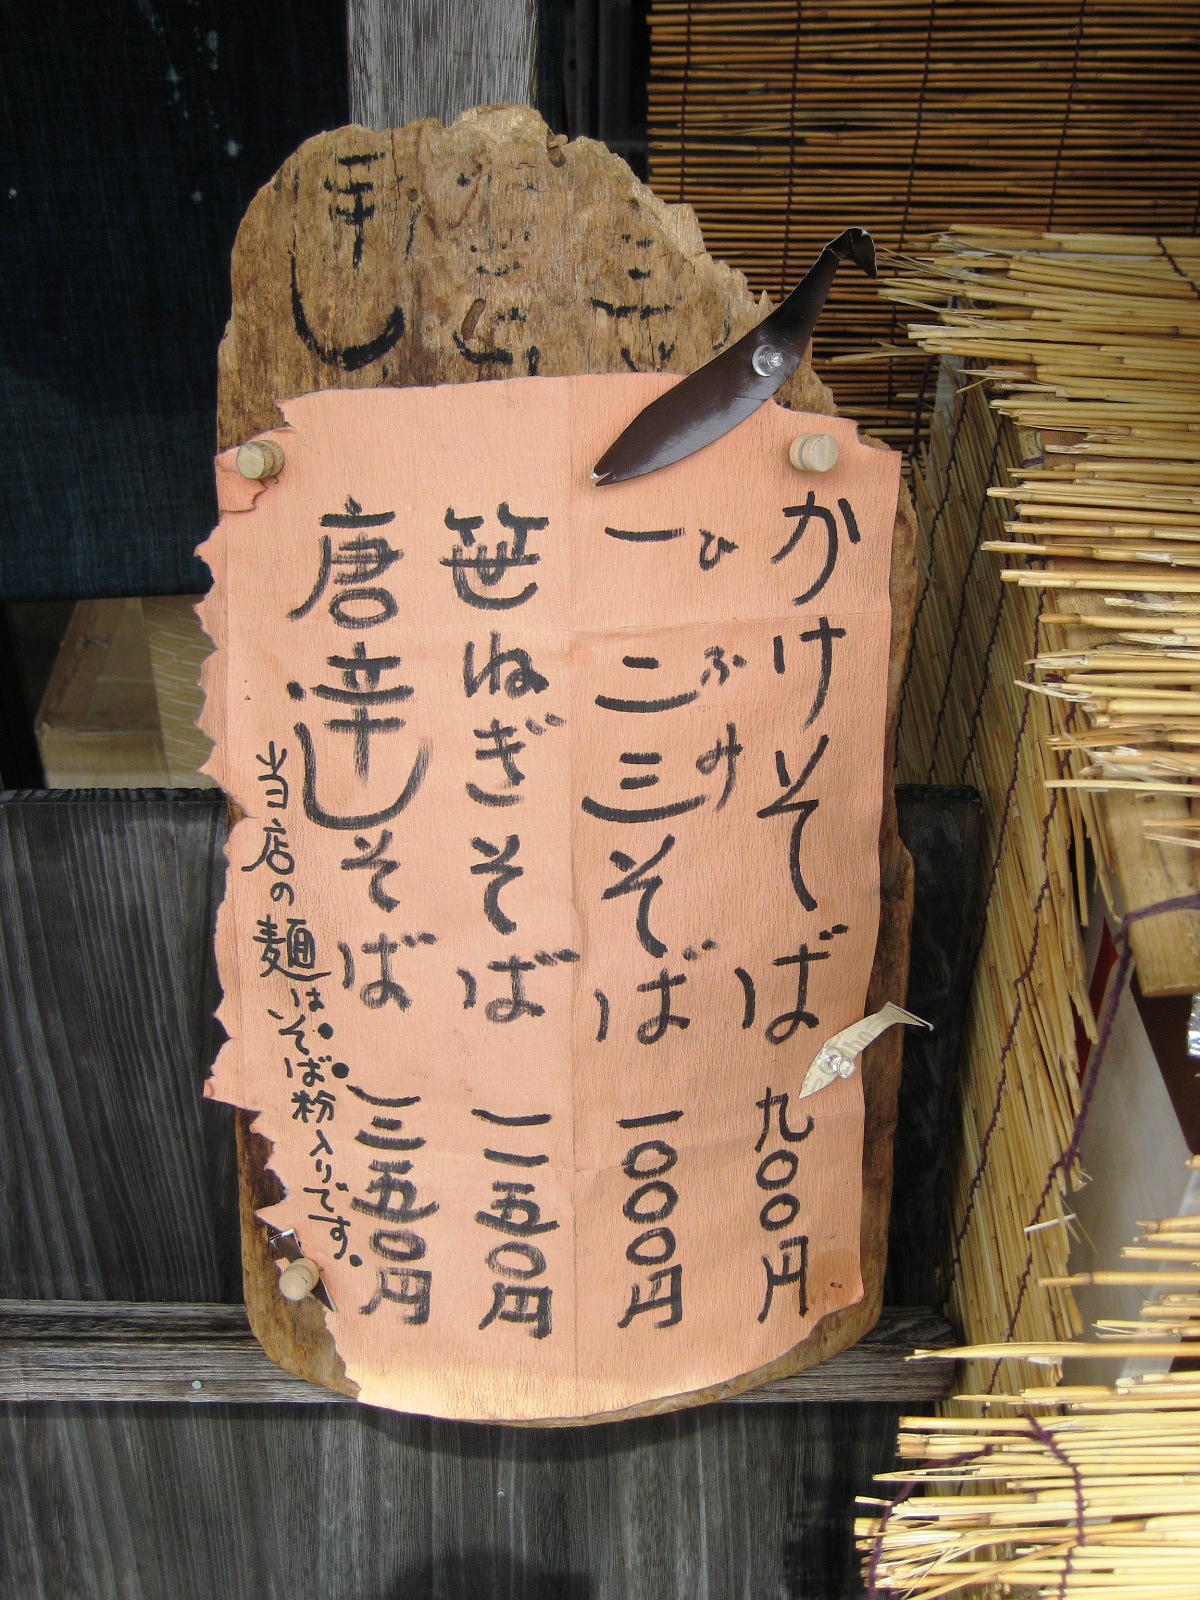 かけそば 九〇〇円
一二三そば 一〇〇〇円
ひふみ
笹ねぎそば 一一五〇円
唐辛しそば 一三五〇円
当店の麺はそば粉入りです。
辛し